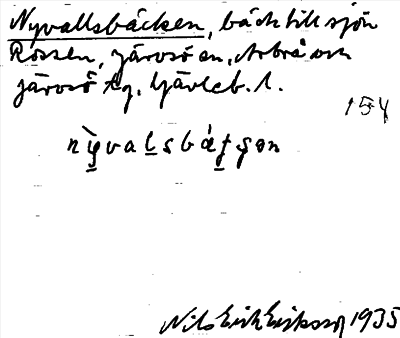 Nyvallsbäcken, bäck till sjön
Rossen, Järvsö sn, Arbrå och
Järvsö tg, Gävleb. l.
154
nỳvalsbátsen
Nils Erik Eriksson 1935